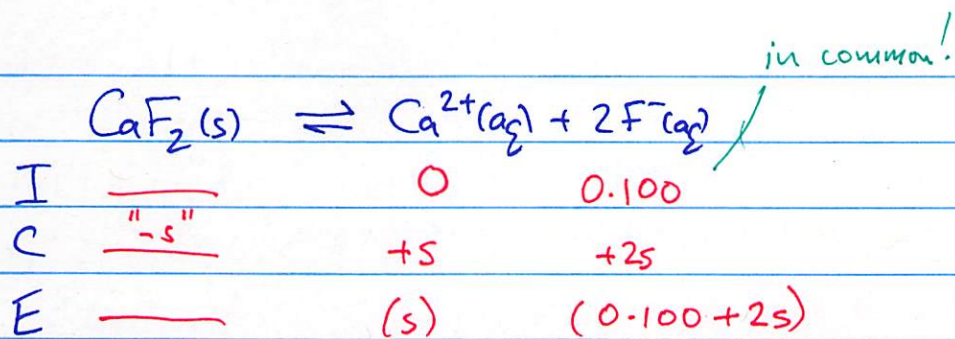 in common!
CaF₂(s) ⇌ Ca²⁺(aq) + 2F⁻(aq)
I — 0 0.100
C "-s" +s +2s
E — (s) (0.100 + 2s)